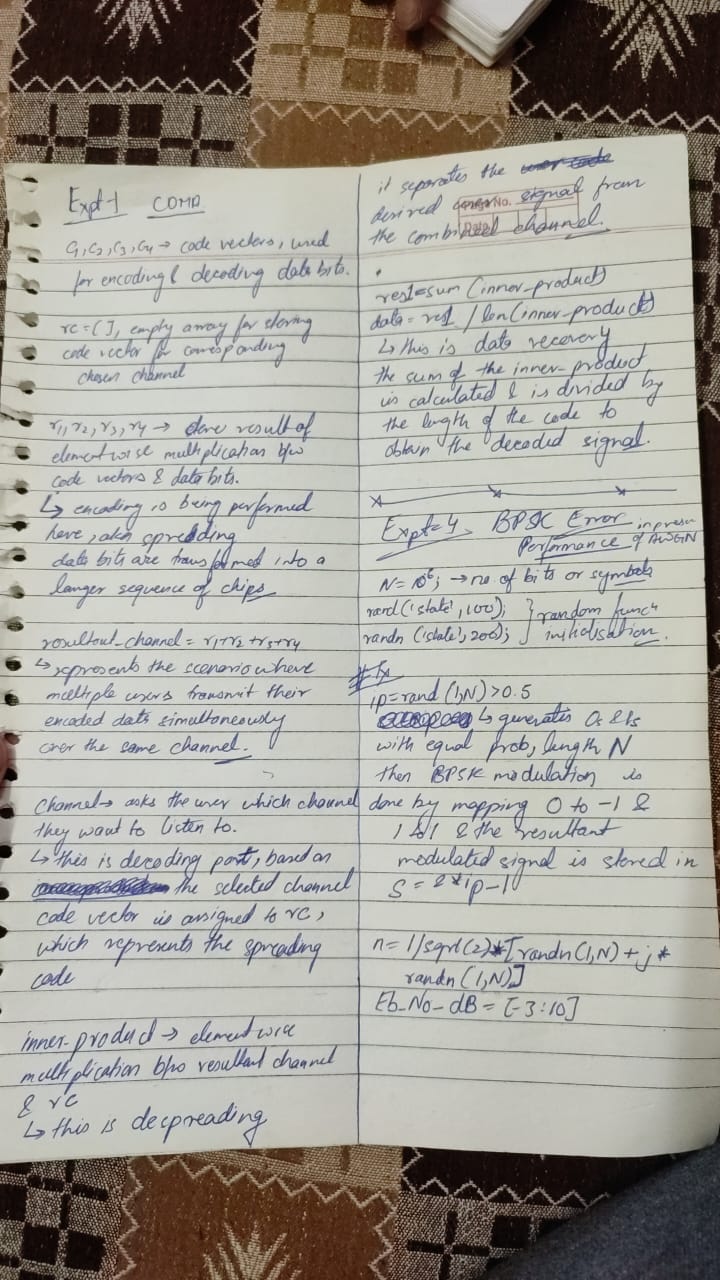 Expt-1 CDMA
C1, C2, C3, C4 → code vectors, used
for encoding & decoding data bits.
rc = [], empty array for storing
code vector for corresponding
chosen channel
r1, r2, r3, r4 → store result of
element wise multiplication b/w
code vectors & data bits.
↳ encoding is being performed
here, aka spreading
data bits are transformed into a
longer sequence of chips
resultant_channel = r1+r2+r3+r4
↳ represents the scenario where
multiple users transmit their
encoded data simultaneously
over the same channel.
Channel → asks the user which channel
they want to listen to.
↳ this is decoding part, based on
the selected channel
code vector is assigned to rc,
which represents the spreading
code
inner-product → element wise
multiplication b/w resultant channel
& rc
↳ this is decpreading
it separates the
desired user signal from
the combined channel.
Page No.
Date
res1=sum (inner-product)
data = res1 / len(inner-product)
↳ this is data recovery
the sum of the inner-product
is calculated & is divided by
the length of the code to
obtain the decoded signal.
Expt-4. BPSK Error in presn
Performance of AWGN
N = 10^6; → no of bits or symbols
rand('state', 100); } random funcn
randn ('state', 200); } initialisation.
# Tx
ip=rand (1,N) > 0.5
↳ generates 0s & 1s
with equal prob, length N
then BPSK modulation is
done by mapping 0 to -1 &
1 to 1 & the resultant
modulated signal is stored in
S = 2*ip-1
n = 1/sqrt(2)*[randn(1,N) + j*
randn (1,N)]
Eb_No_dB = [-3:10]